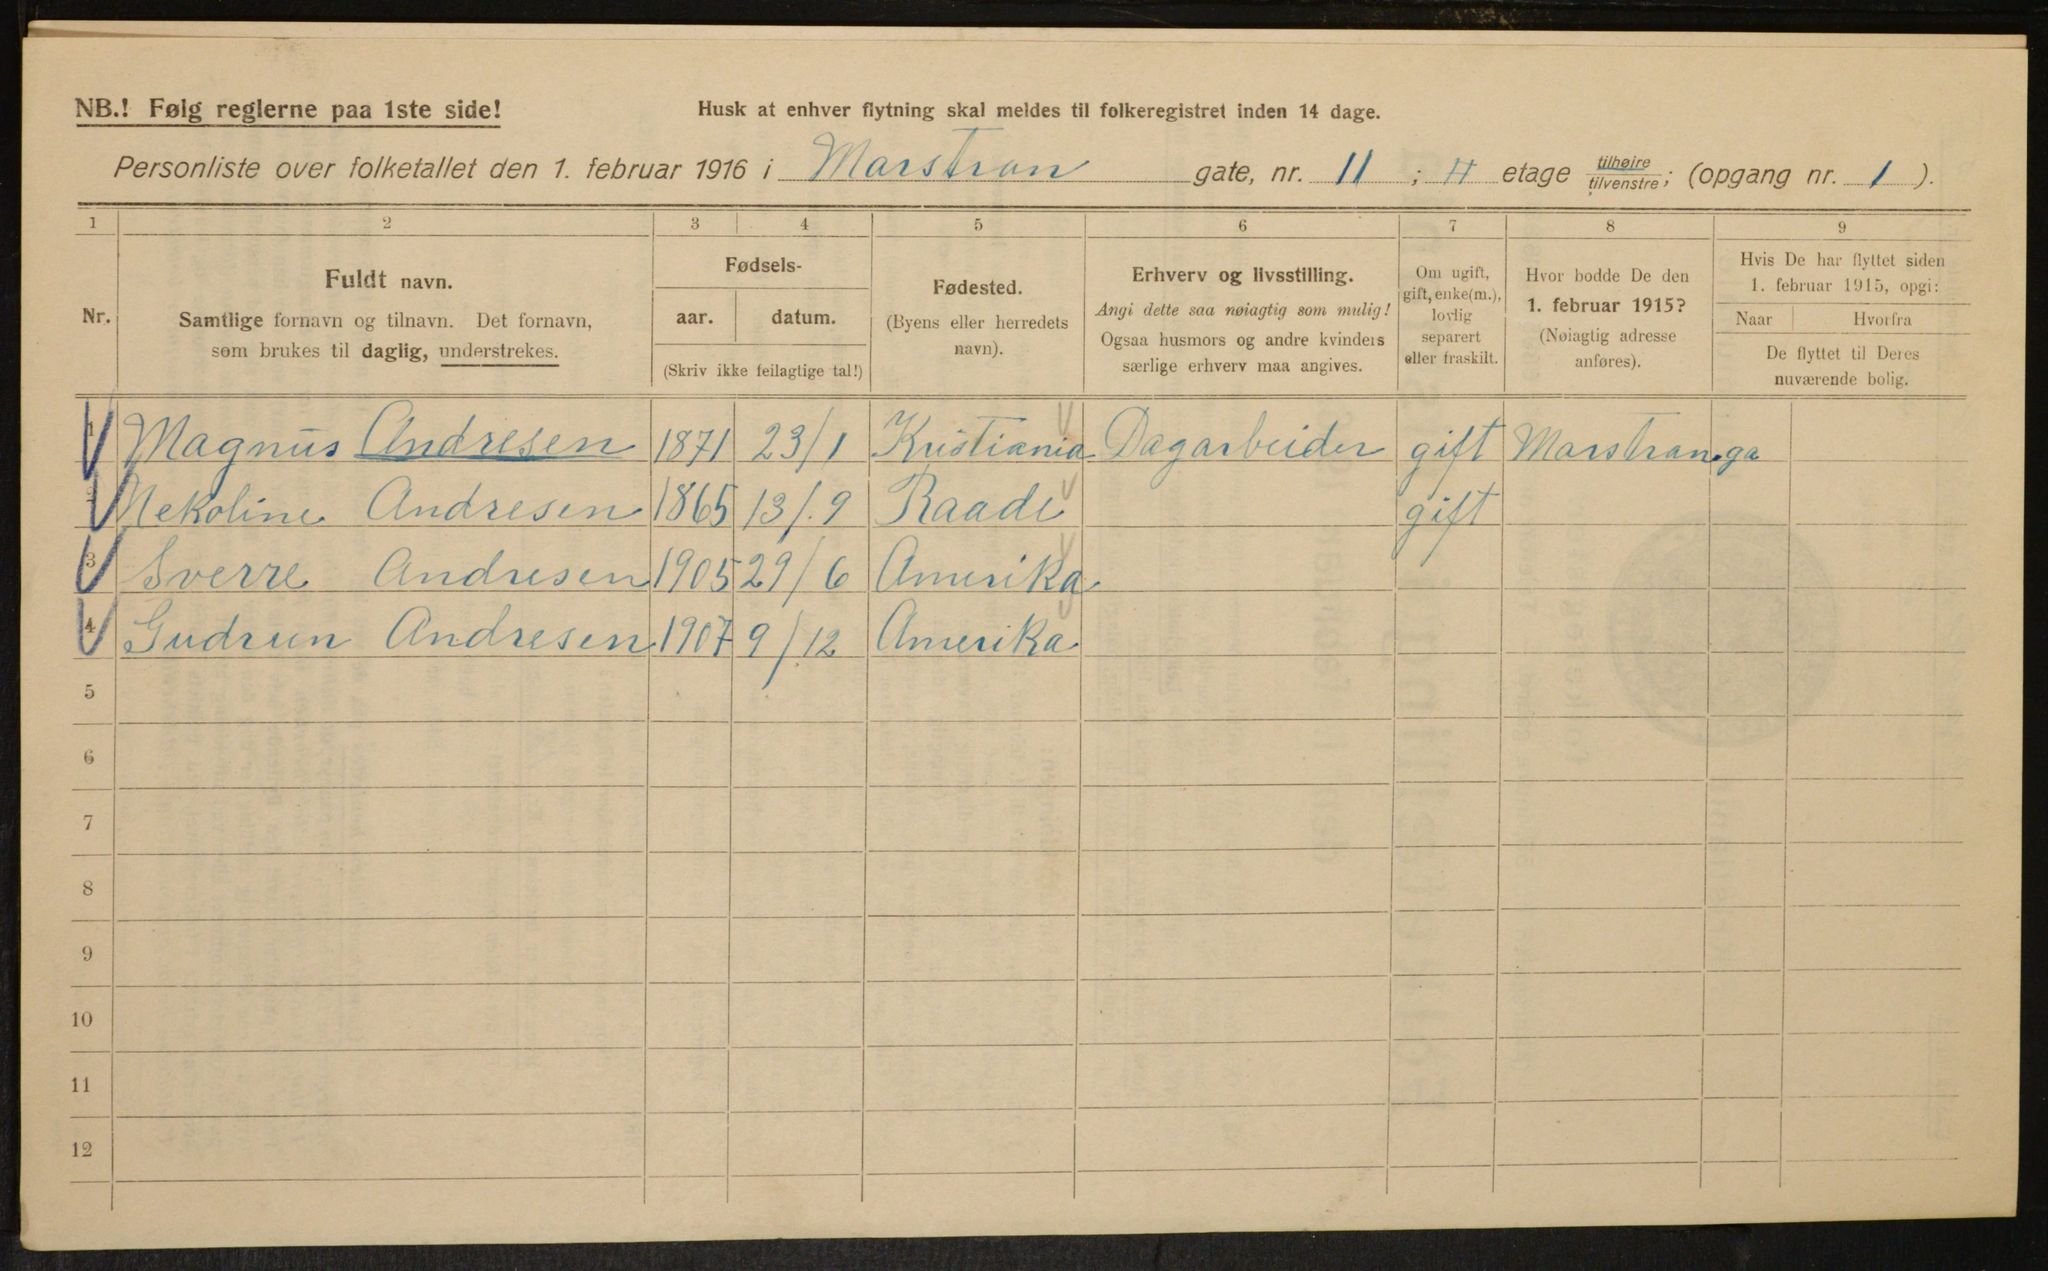 NB.! Følg reglerne paa 1ste side!
Husk at enhver flytning skal meldes til folkeregistret inden 14 dage.
Personliste over folketallet den 1. februar 1916 i Marstran gate, nr. 11 ; II etage tilhøire/tilvenstre; (opgang nr. 1 ).
1 2 3 4 5 6 7 8 9
Nr.
Fuldt navn.
Samtlige fornavn og tilnavn. Det fornavn,
som brukes til daglig, understrekes.
Fødsels-
aar. datum.
(Skriv ikke feilagtige tal!)
Fødested.
(Byens eller herredets
navn).
Erhverv og livsstilling.
Angi dette saa nøiagtig som mulig!
Ogsaa husmors og andre kvinders
særlige erhverv maa angives.
Om ugift,
gift, enke(m.),
lovlig
separert
eller fraskilt.
Hvor bodde De den
1. februar 1915?
(Nøiagtig adresse
anføres).
Hvis De har flyttet siden
1. februar 1915, opgi:
Naar Hvorfra
De flyttet til Deres
nuværende bolig.
1 Magnus Andresen 1871 23/1 Kristiania Dagarbeider gift Marstran.ga
2 Nekoline Andresen 1865 13/9 Raade gift
3 Sverre Andresen 1905 29/6 Amerika
4 Gudrun Andresen 1907 9/12 Amerika
5
6
7
8
9
10
11
12